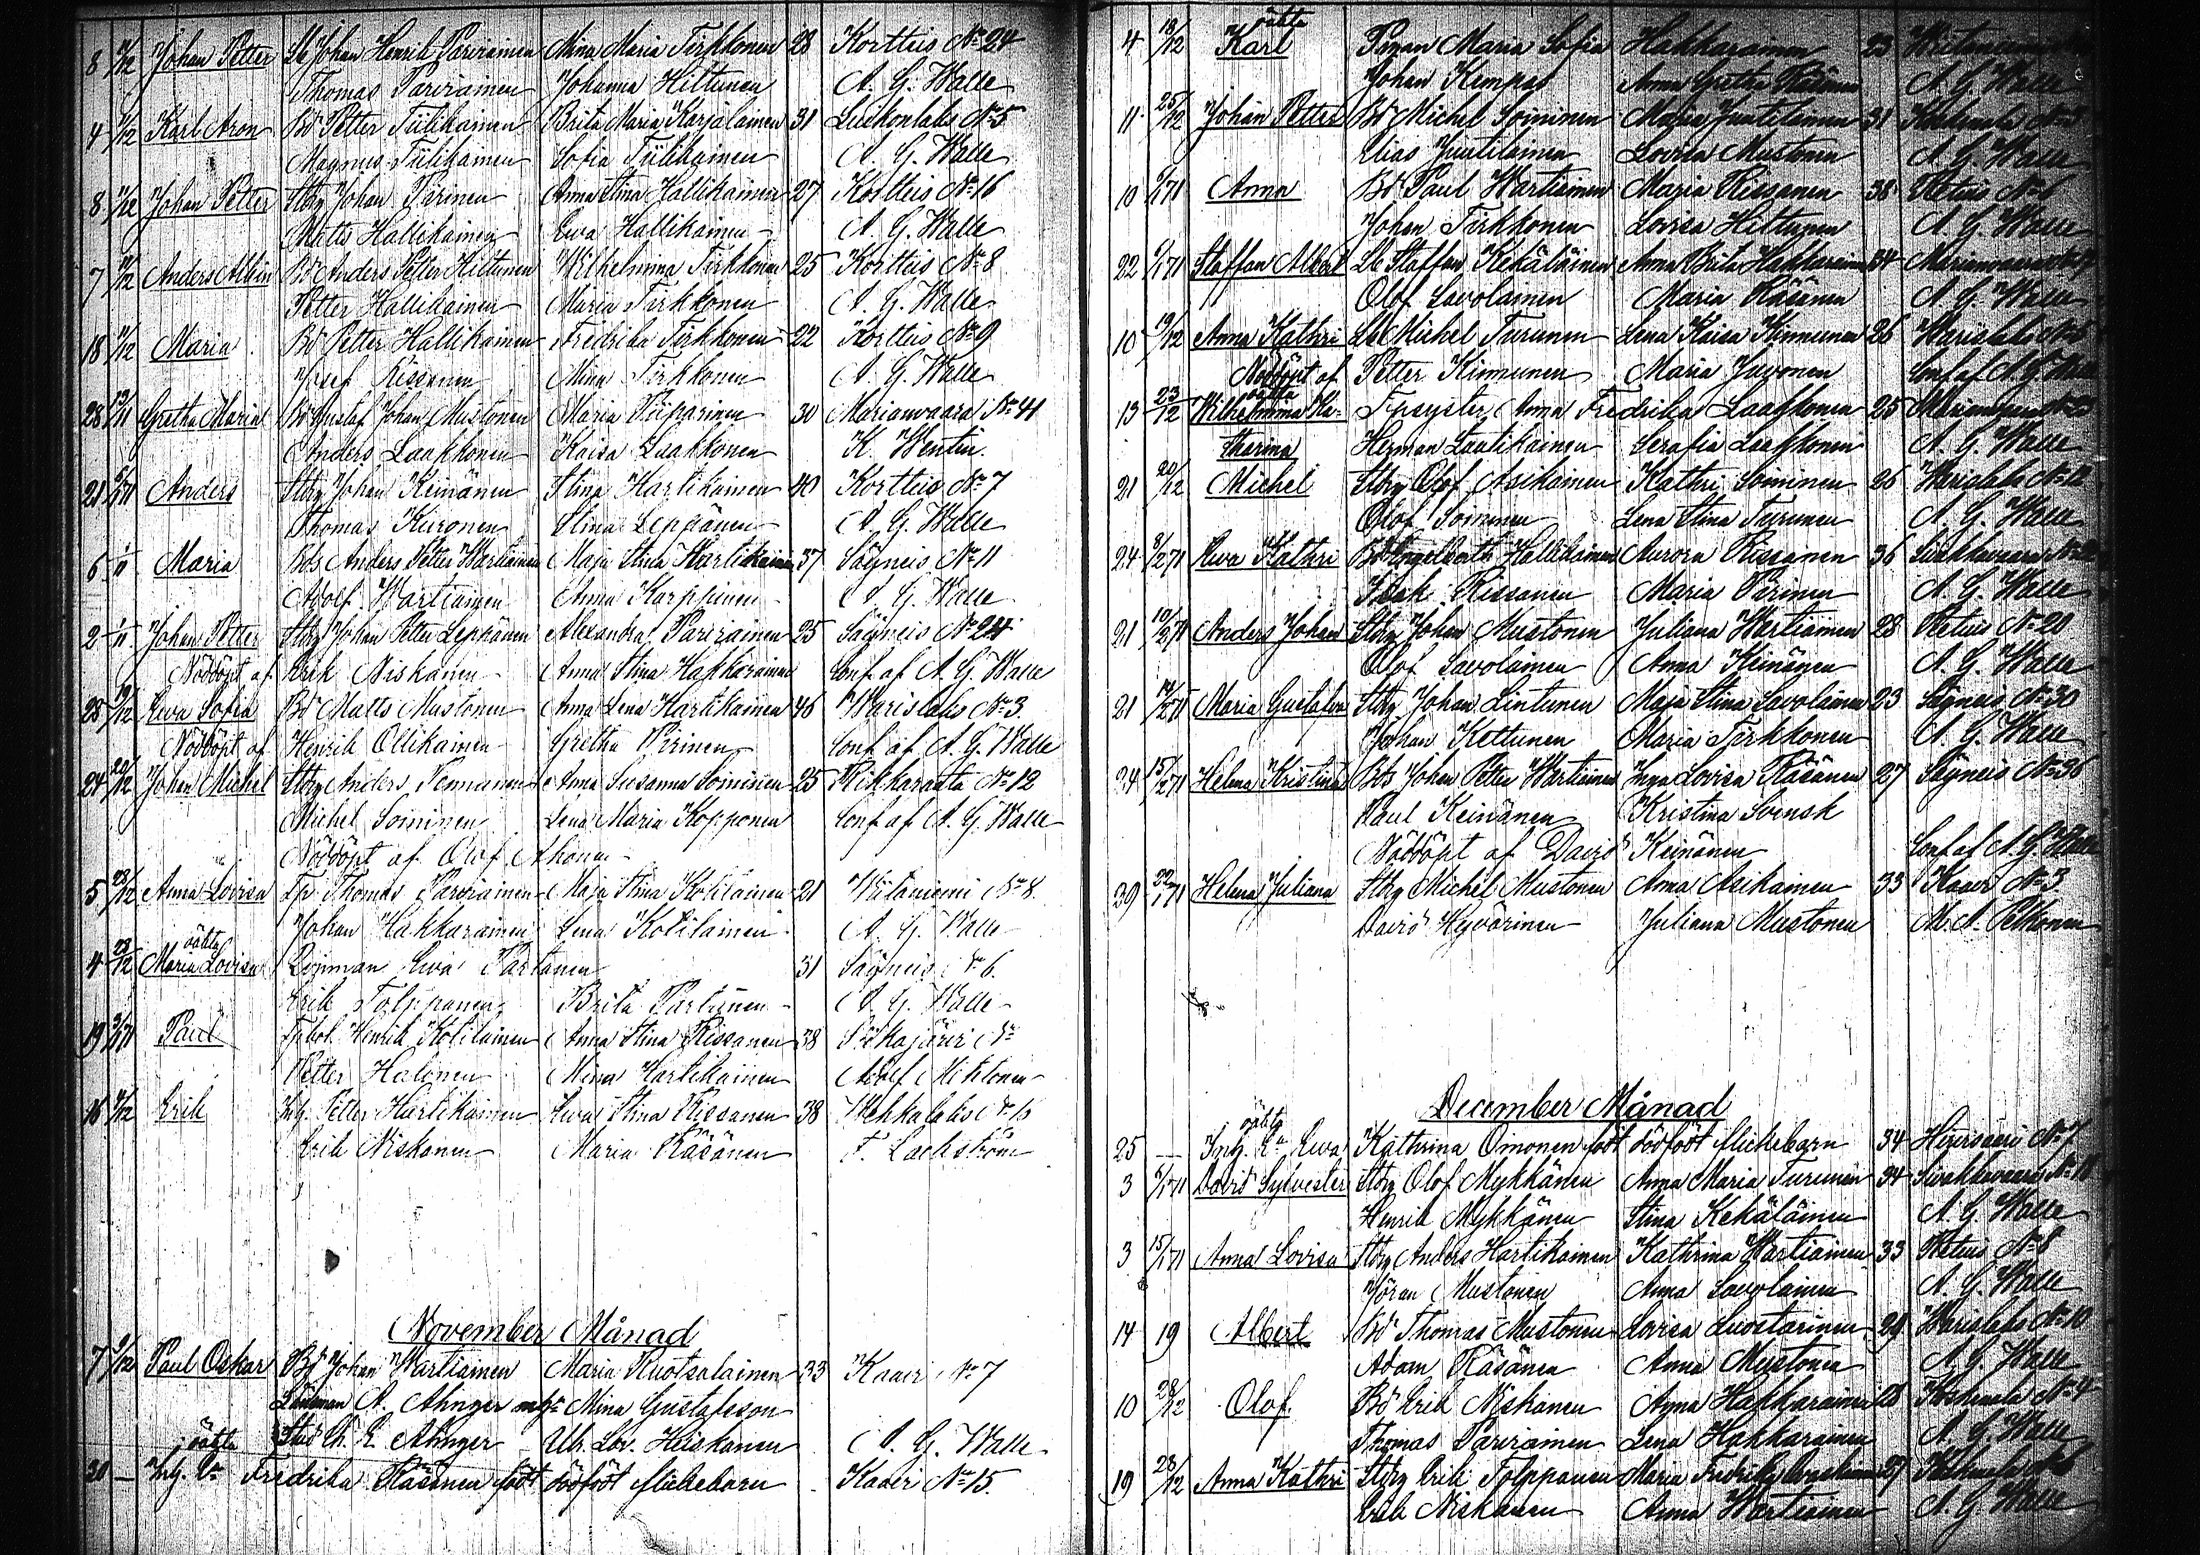 8 11/12 Johan Petter Lb Johan Henrik Parviainen Mina Maria Tirkkonen 28 Kortteis No 24
Thomas Parviainen Johanna Hiltunen A. G. Walle
4 11/12 Karl Aron Bd Petter Tiilikainen Brita Maria Karjalainen 31 No 5
Magnus Tiilikainen Sofia Tiilikainen A. G. Walle
8 11/12 Johan Petter Stbg Johan Parinen Anna Stina Hallikainen 27 Kortteis No 16
Matts Hallikainen Ewa Hallikainen A. G. Walle
7 11/12 Anders Albin Bd Anders Petter Hiltunen Wilhelmina Tirkkonen 25 Kortteis No 8
Petter Hallikainen Maria Tirkkonen A. G. Walle
18 11/12 Maria Bd Petter Hallikainen Fredrika Tirkkonen 22 Kortteis No 9
Josef Rissanen Mina Tirkkonen A. G. Walle
28 Gretha Maria Bd Gustaf Johan Mustonen Maria Piiparinen 30 Marianvaara No 41
Anders Laakkonen Kaisa Laakkonen K. Wentin
21 Anders Stbg Johan Keinänen Stina Hartikainen 40 Kortteis No 7
Thomas Kuronen Stina Leppänen A. G. Walle
6 Maria Bds Anders Petter Wartiainen Maja Stina Hartikainen 37 Säyneis No 11
Adolf Wartiainen Anna Karppinen A. G. Walle
2 Johan Petter Stbg Johan Petter Leppänen Alexandra Parviainen 25 Säyneis No 24
Nöddöpt af Erik Niskanen Anna Stina Hakkarainen Conf af A. G. Walle
28 Ewa Sofia Bd Matts Mustonen Anna Lena Hartikainen 46 Warislaks No 3
Nöddöpt af Henrik Ollikainen Gretha Pirinen Conf af A. G. Walle
24 Johan Michel Stbg Anders Pennanen Anna Susanna Soininen 25 No 12
Michel Soininen Lena Maria Kopponen Conf af A. G. Walle
Nöddöpt af Olof Ahonen
5 23/12 Anna Lovisa Tp Thomas Parviainen Maja Stina Kolilainen 21 Witaniemi No 8
Johan Hakkarainen Lena Kotilainen A. G. Walle
oäkta
4 23/12 Maria Lovisa Ewa Partanen 31 Säyneis No 6
Erik Tolppanen Brita Partanen A. G. Walle
19 Paul Henrik Kotilainen Anna Stina Rissanen 38 No
Petter Halonen Mina Hartikainen Adolf
16 Erik Petter Hartikainen Ewa Stina Rissanen 38
Erik Niskanen Maria Räsänen F. Lackström
November Månad
7 Paul Oskar Bd Johan Wartiainen Maria Ruotsalainen 33 Kaavi No 7
Länsman A. Ahnger Mina Gustafsson
Ahnger Ulr. Lov. Heiskanen A. G. Walle
oäkta
30 — Fredrika Räsänen födt dödfödt flickebarn Kaavi No 15.
oäkta
4 18/12 Karl Maria Sofia Hakkarainen 23
Johan Anna Gretha A. G. Walle
11 25/12 Johan Petter Bd Michel Soininen Maria Juutilainen 31
Elias Juutilainen Lovisa Mustonen A. G. Walle
10 Anna Bd Paul Wartiainen Maria Rissanen 38 Retuis No 6
Johan Tirkkonen Lovisa Hiltunen A. G. Walle
22 Staffan Albert Lb Staffan Kekäläinen Anna Brita Hakkarainen 34
Olof Savolainen Maria Räsänen A. G. Walle
10 19/12 Anna Kathri Lb Michel Turunen Lena Kaisa Kinnunen 26 Warislaks
Nöddöpt af Petter Kinnunen Maria Juvonen Conf af A. G. Walle
oäkta
13 23/12 Wilhelmina Ka- Anna Fredrika Laakkonen 25
tharina Herman Lautikainen Serafia Laakkonen A. G. Walle
21 20/12 Michel Stbg Olof Asikainen Kathri Soininen 26 Warislaks No 12
Olof Soininen Lena Stina Turunen A. G. Walle
24 8/271 Ewa Kathri Bd Engelbrekt Hallikainen Aurora Rissanen 36
Isak Rissanen Maria Parinen A. G. Walle
21 10/271 Anders Johan Stbg Johan Mustonen Juliana Wartiainen 28 Retuis No 20
Olof Savolainen Anna Keinänen A. G. Walle
21 14/271 Maria Gustafva Stbg Johan Lintunen Maja Stina Savolainen 23 Säyneis No 30
Johan Kettunen Maria Tirkkonen A. G. Walle
24 15/271 Helena Kristina Bds Johan Petter Wartiainen Lovisa Räsänen 27 Säyneis No 36
Paul Keinänen Kristina Svensk
Nöddöpt af David Keinänen Conf af A. G. Walle
30 22/171 Helena Juliana Stbg Michel Mustonen Anna Asikainen 33 Kaavi No 3
David Hyvärinen Juliana Mustonen M. A. Pelkonen
December Månad
oäkta
25 — Ewa Kathrina Omonen födt dödfödt flickebarn 34 No 7
3 6/171 David Sylvester Stbg Olof Mykkänen Anna Maria Turunen 34 Sivakkavaara No 18
Henrik Mykkänen Stina Kekäläinen A. G. Walle
3 15/171 Anna Lovisa Stbg Anders Hartikainen Kathrina Wartiainen 33 Retuis No 8
Jöran Mustonen Anna Savolainen A. G. Walle
14 19 Albert Bd Thomas Mustonen Lovisa Luostarinen 29 Warislaks No 10
Adam Räsänen Anna Mustonen A. G. Walle
10 28/12 Olof Bd Erik Niskanen Anna Hakkarainen 28 No 4
Thomas Parviainen Lena Hakkarainen A. G. Walle
19 23/12 Anna Kathri Stbg Erik Tolppanen Maria Fredrika 27
Erik Niskanen Anna Wartiainen A. G. Walle